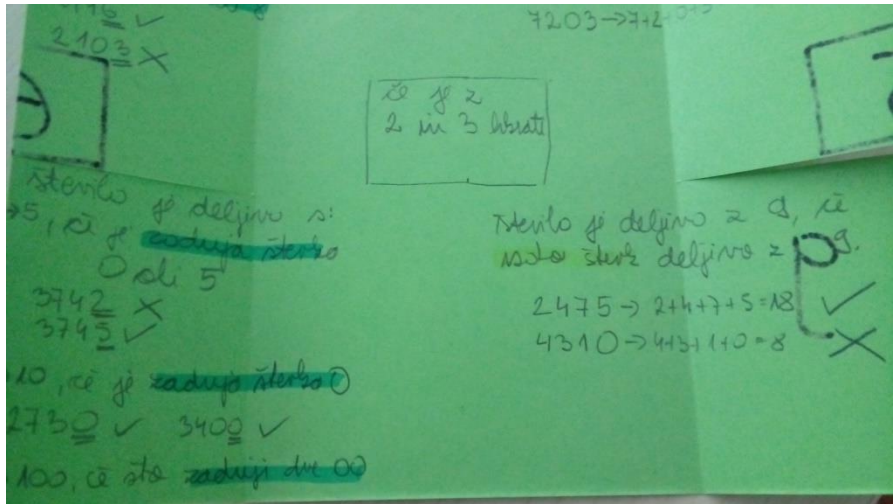 2103 X
7203→7+2+0+3
če je z
2 in 3 hkrati
število je deljivo s:
→5, če je zadnja števka
0 ali 5
3742 X
3745 ✓
10, če je zadnja števka 0
2730 ✓ 3400 ✓
100, če sta zadnji dve 00
število je deljivo z 9, če
vsota števk deljivo z 9.
2475→2+4+7+5=18 ✓
4310→4+3+1+0=8 X